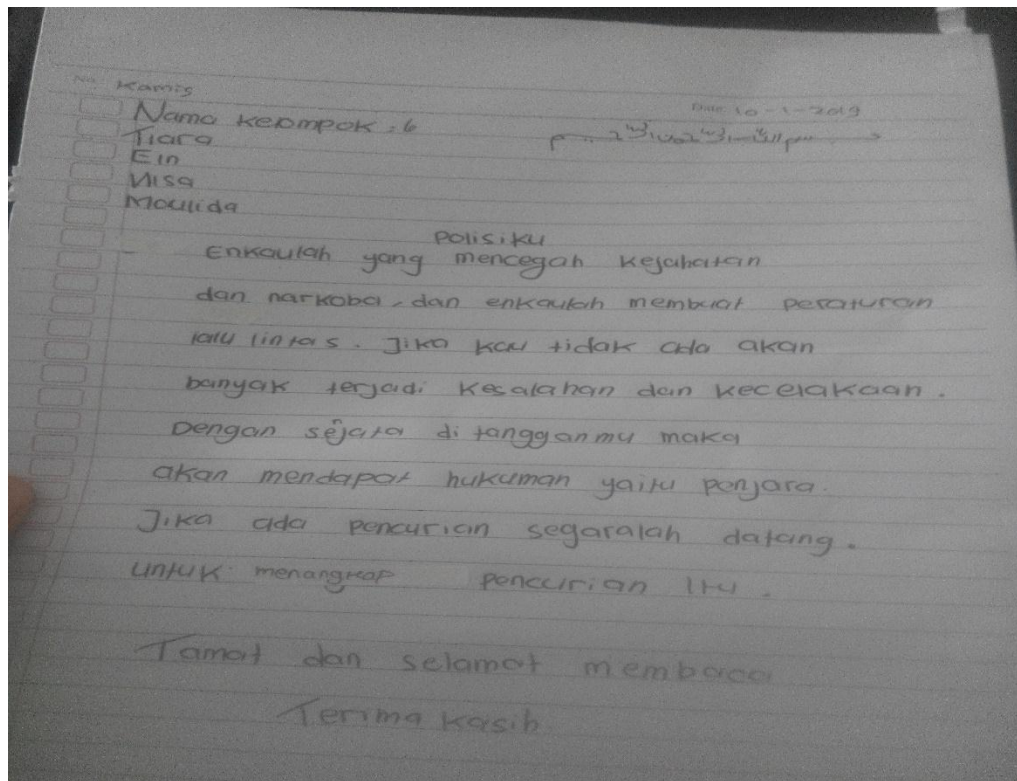 No.
Kamis
Date 10-1-2019
Nama kelompok : 6
Tiara
Ein
Nisa
Moulida
Polisiku
Enkaulah yang mencegah kejahatan
dan narkoba, dan enkaulah membuat peraturan
lalu lintas. Jika kau tidak ada akan
banyak terjadi kesalahan dan kecelakaan.
Dengan sejata di tangganmu maka
akan mendapat hukuman yaitu penjara.
Jika ada pencurian segaralah datang.
untuk menangkap pencurian itu.
Tamat dan selamat membaca
Terima kasih